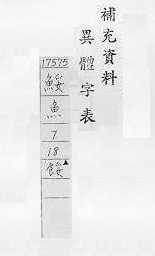 補充資料
異體字表
17575
鮾
魚
7
18